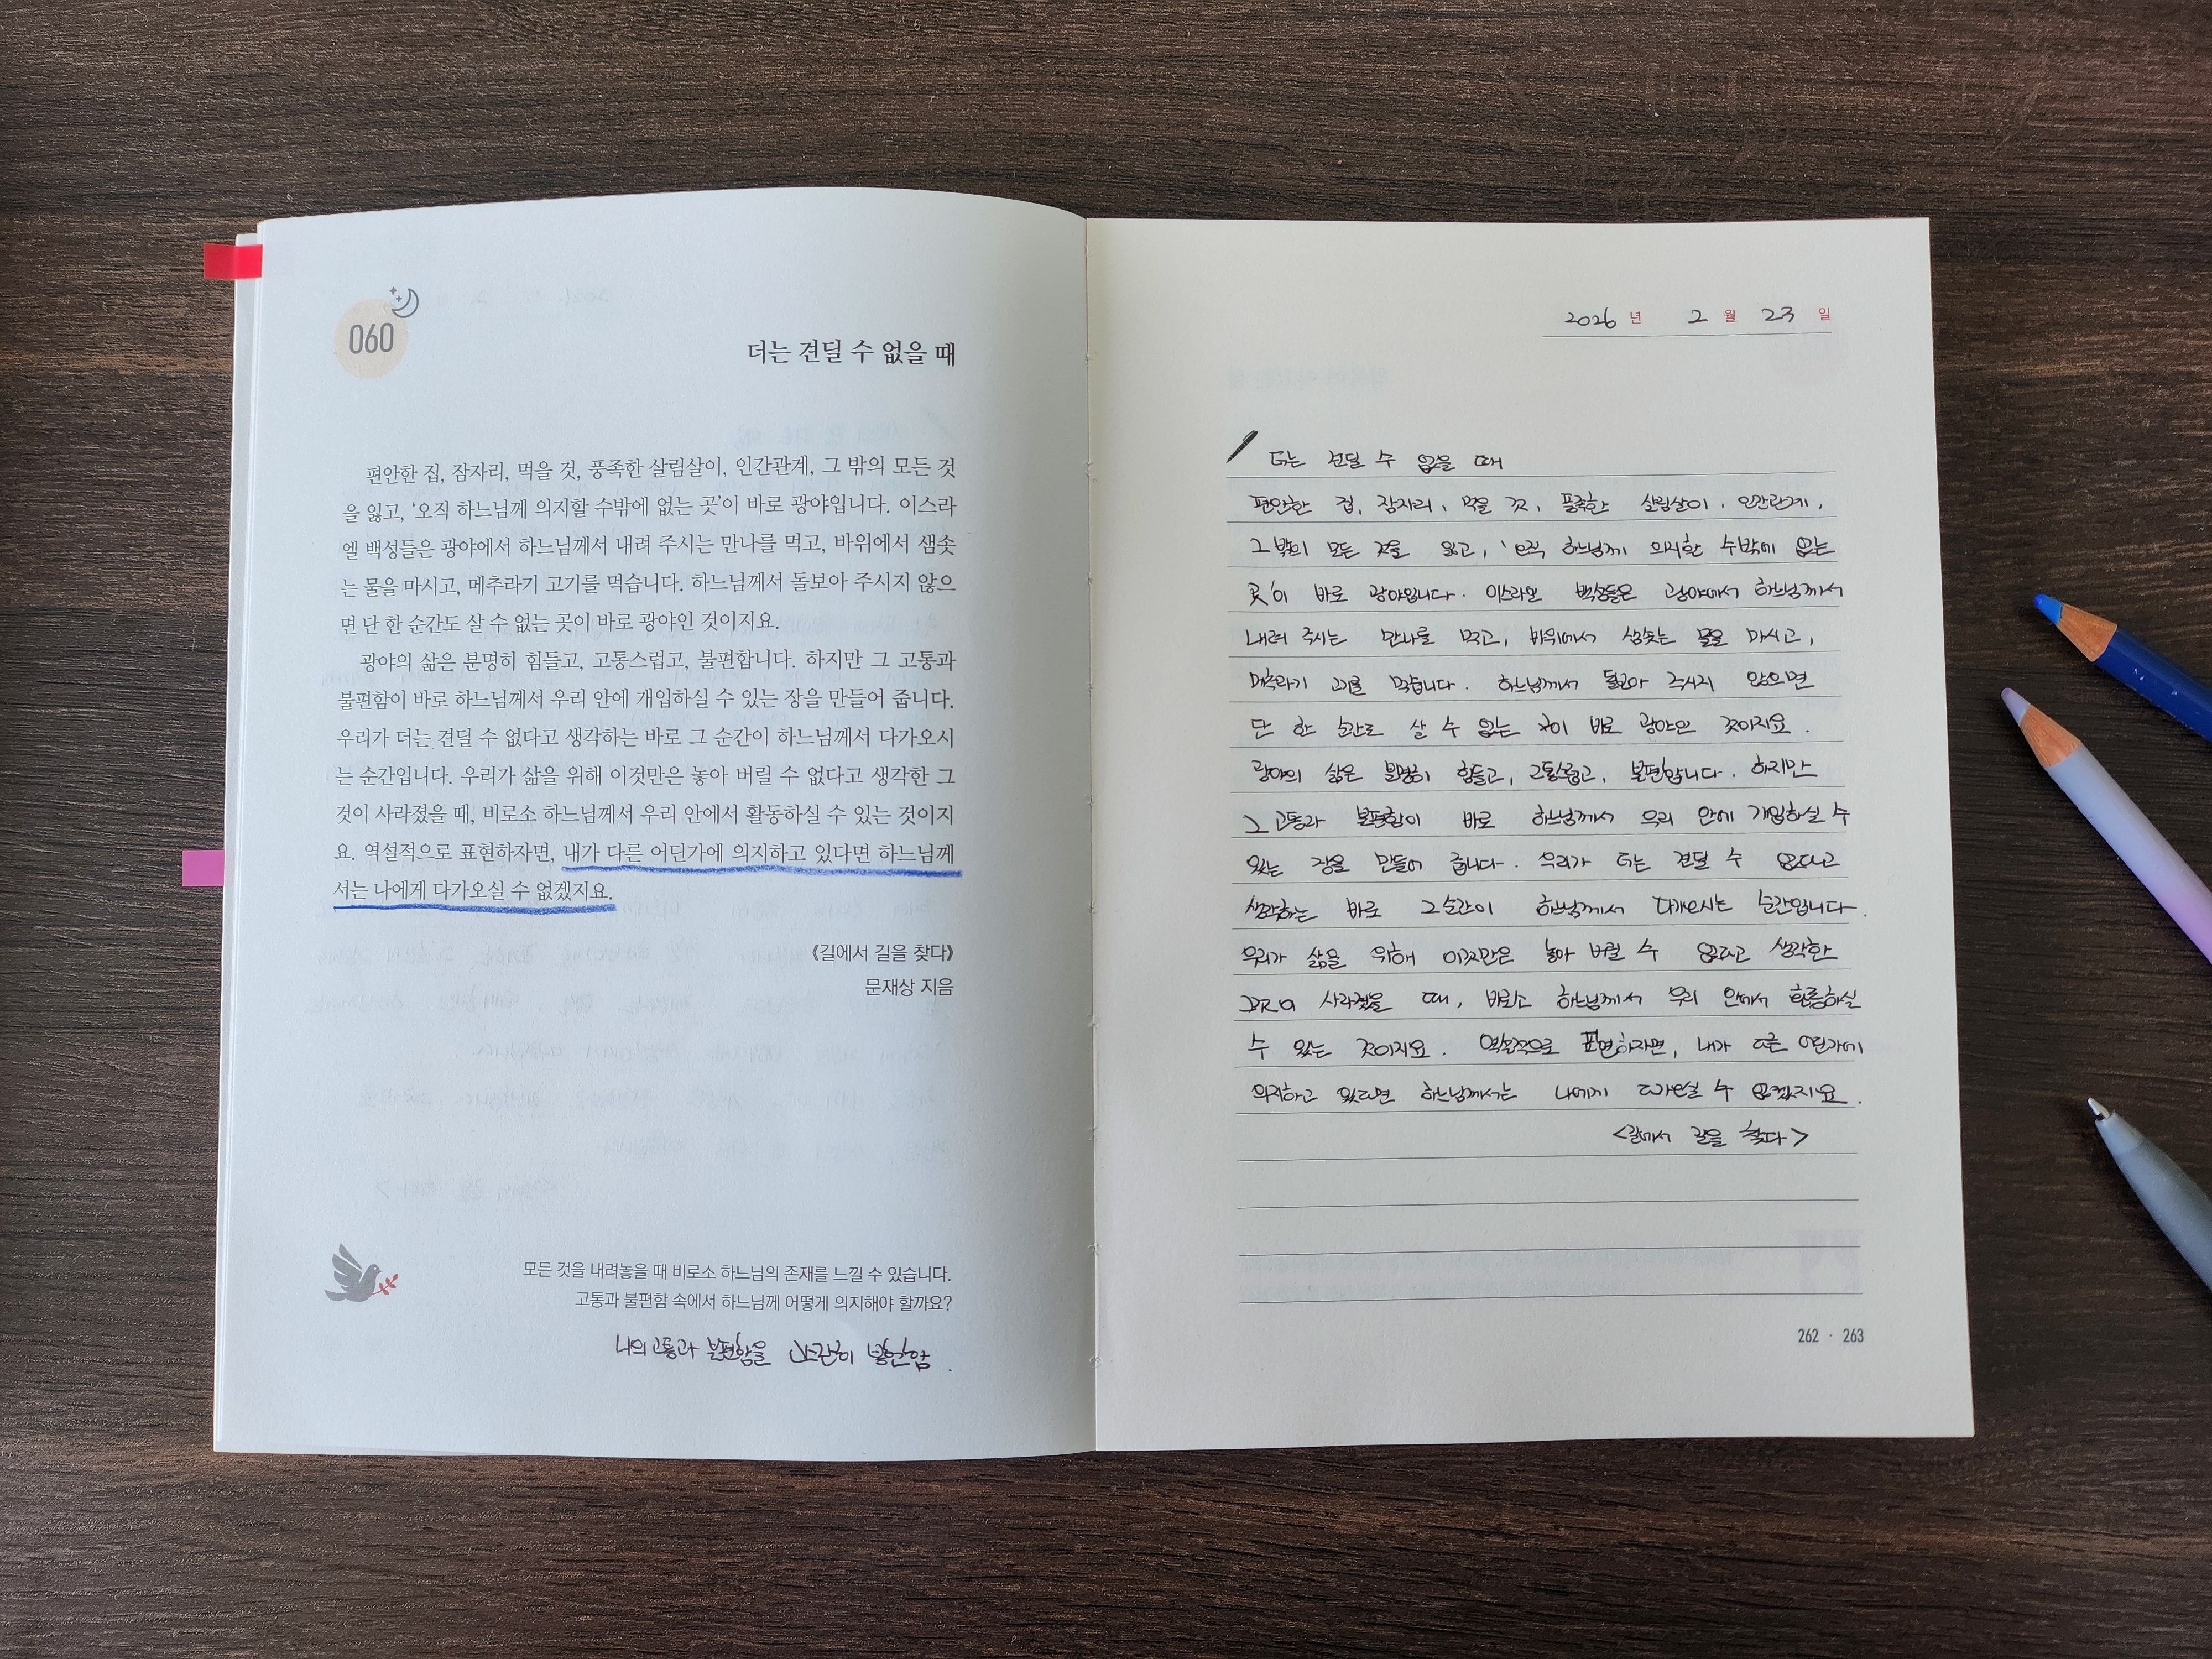 060
더는 견딜 수 없을 때
편안한 집, 잠자리, 먹을 것, 풍족한 살림살이, 인간관계, 그 밖의 모든 것
을 잃고, ‘오직 하느님께 의지할 수밖에 없는 곳’이 바로 광야입니다. 이스라
엘 백성들은 광야에서 하느님께서 내려 주시는 만나를 먹고, 바위에서 샘솟
는 물을 마시고, 메추라기 고기를 먹습니다. 하느님께서 돌보아 주시지 않으
면 단 한 순간도 살 수 없는 곳이 바로 광야인 것이지요.
광야의 삶은 분명히 힘들고, 고통스럽고, 불편합니다. 하지만 그 고통과
불편함이 바로 하느님께서 우리 안에 개입하실 수 있는 장을 만들어 줍니다.
우리가 더는 견딜 수 없다고 생각하는 바로 그 순간이 하느님께서 다가오시
는 순간입니다. 우리가 삶을 위해 이것만은 놓아 버릴 수 없다고 생각한 그
것이 사라졌을 때, 비로소 하느님께서 우리 안에서 활동하실 수 있는 것이지
요. 역설적으로 표현하자면, 내가 다른 어딘가에 의지하고 있다면 하느님께
서는 나에게 다가오실 수 없겠지요.
《길에서 길을 찾다》
문재상 지음
모든 것을 내려놓을 때 비로소 하느님의 존재를 느낄 수 있습니다.
고통과 불편함 속에서 하느님께 어떻게 의지해야 할까요?
나의 고통과 불편함을 봉헌함.
2026 년 2 월 23 일
더는 견딜 수 없을 때
편안한 집, 잠자리, 먹을 것, 풍족한 살림살이, 인간관계,
그 밖의 모든 것을 잃고, ‘오직 하느님께 의지할 수밖에 없는
곳’이 바로 광야입니다. 이스라엘 백성들은 광야에서 하느님께서
내려 주시는 만나를 먹고, 바위에서 샘솟는 물을 마시고,
메추라기 고기를 먹습니다. 하느님께서 돌보아 주시지 않으면
단 한 순간도 살 수 없는 곳이 바로 광야인 것이지요.
광야의 삶은 분명히 힘들고, 고통스럽고, 불편합니다. 하지만
그 고통과 불편함이 바로 하느님께서 우리 안에 개입하실 수
있는 장을 만들어 줍니다. 우리가 더는 견딜 수 없다고
생각하는 바로 그 순간이 하느님께서 다가오시는 순간입니다.
우리가 삶을 위해 이것만은 놓아 버릴 수 없다고 생각한
그것이 사라졌을 때, 비로소 하느님께서 우리 안에서 활동하실
수 있는 것이지요. 역설적으로 표현하자면, 내가 다른 어딘가에
의지하고 있다면 하느님께서는 나에게 다가오실 수 없겠지요.
<길에서 길을 찾다>
262 · 263